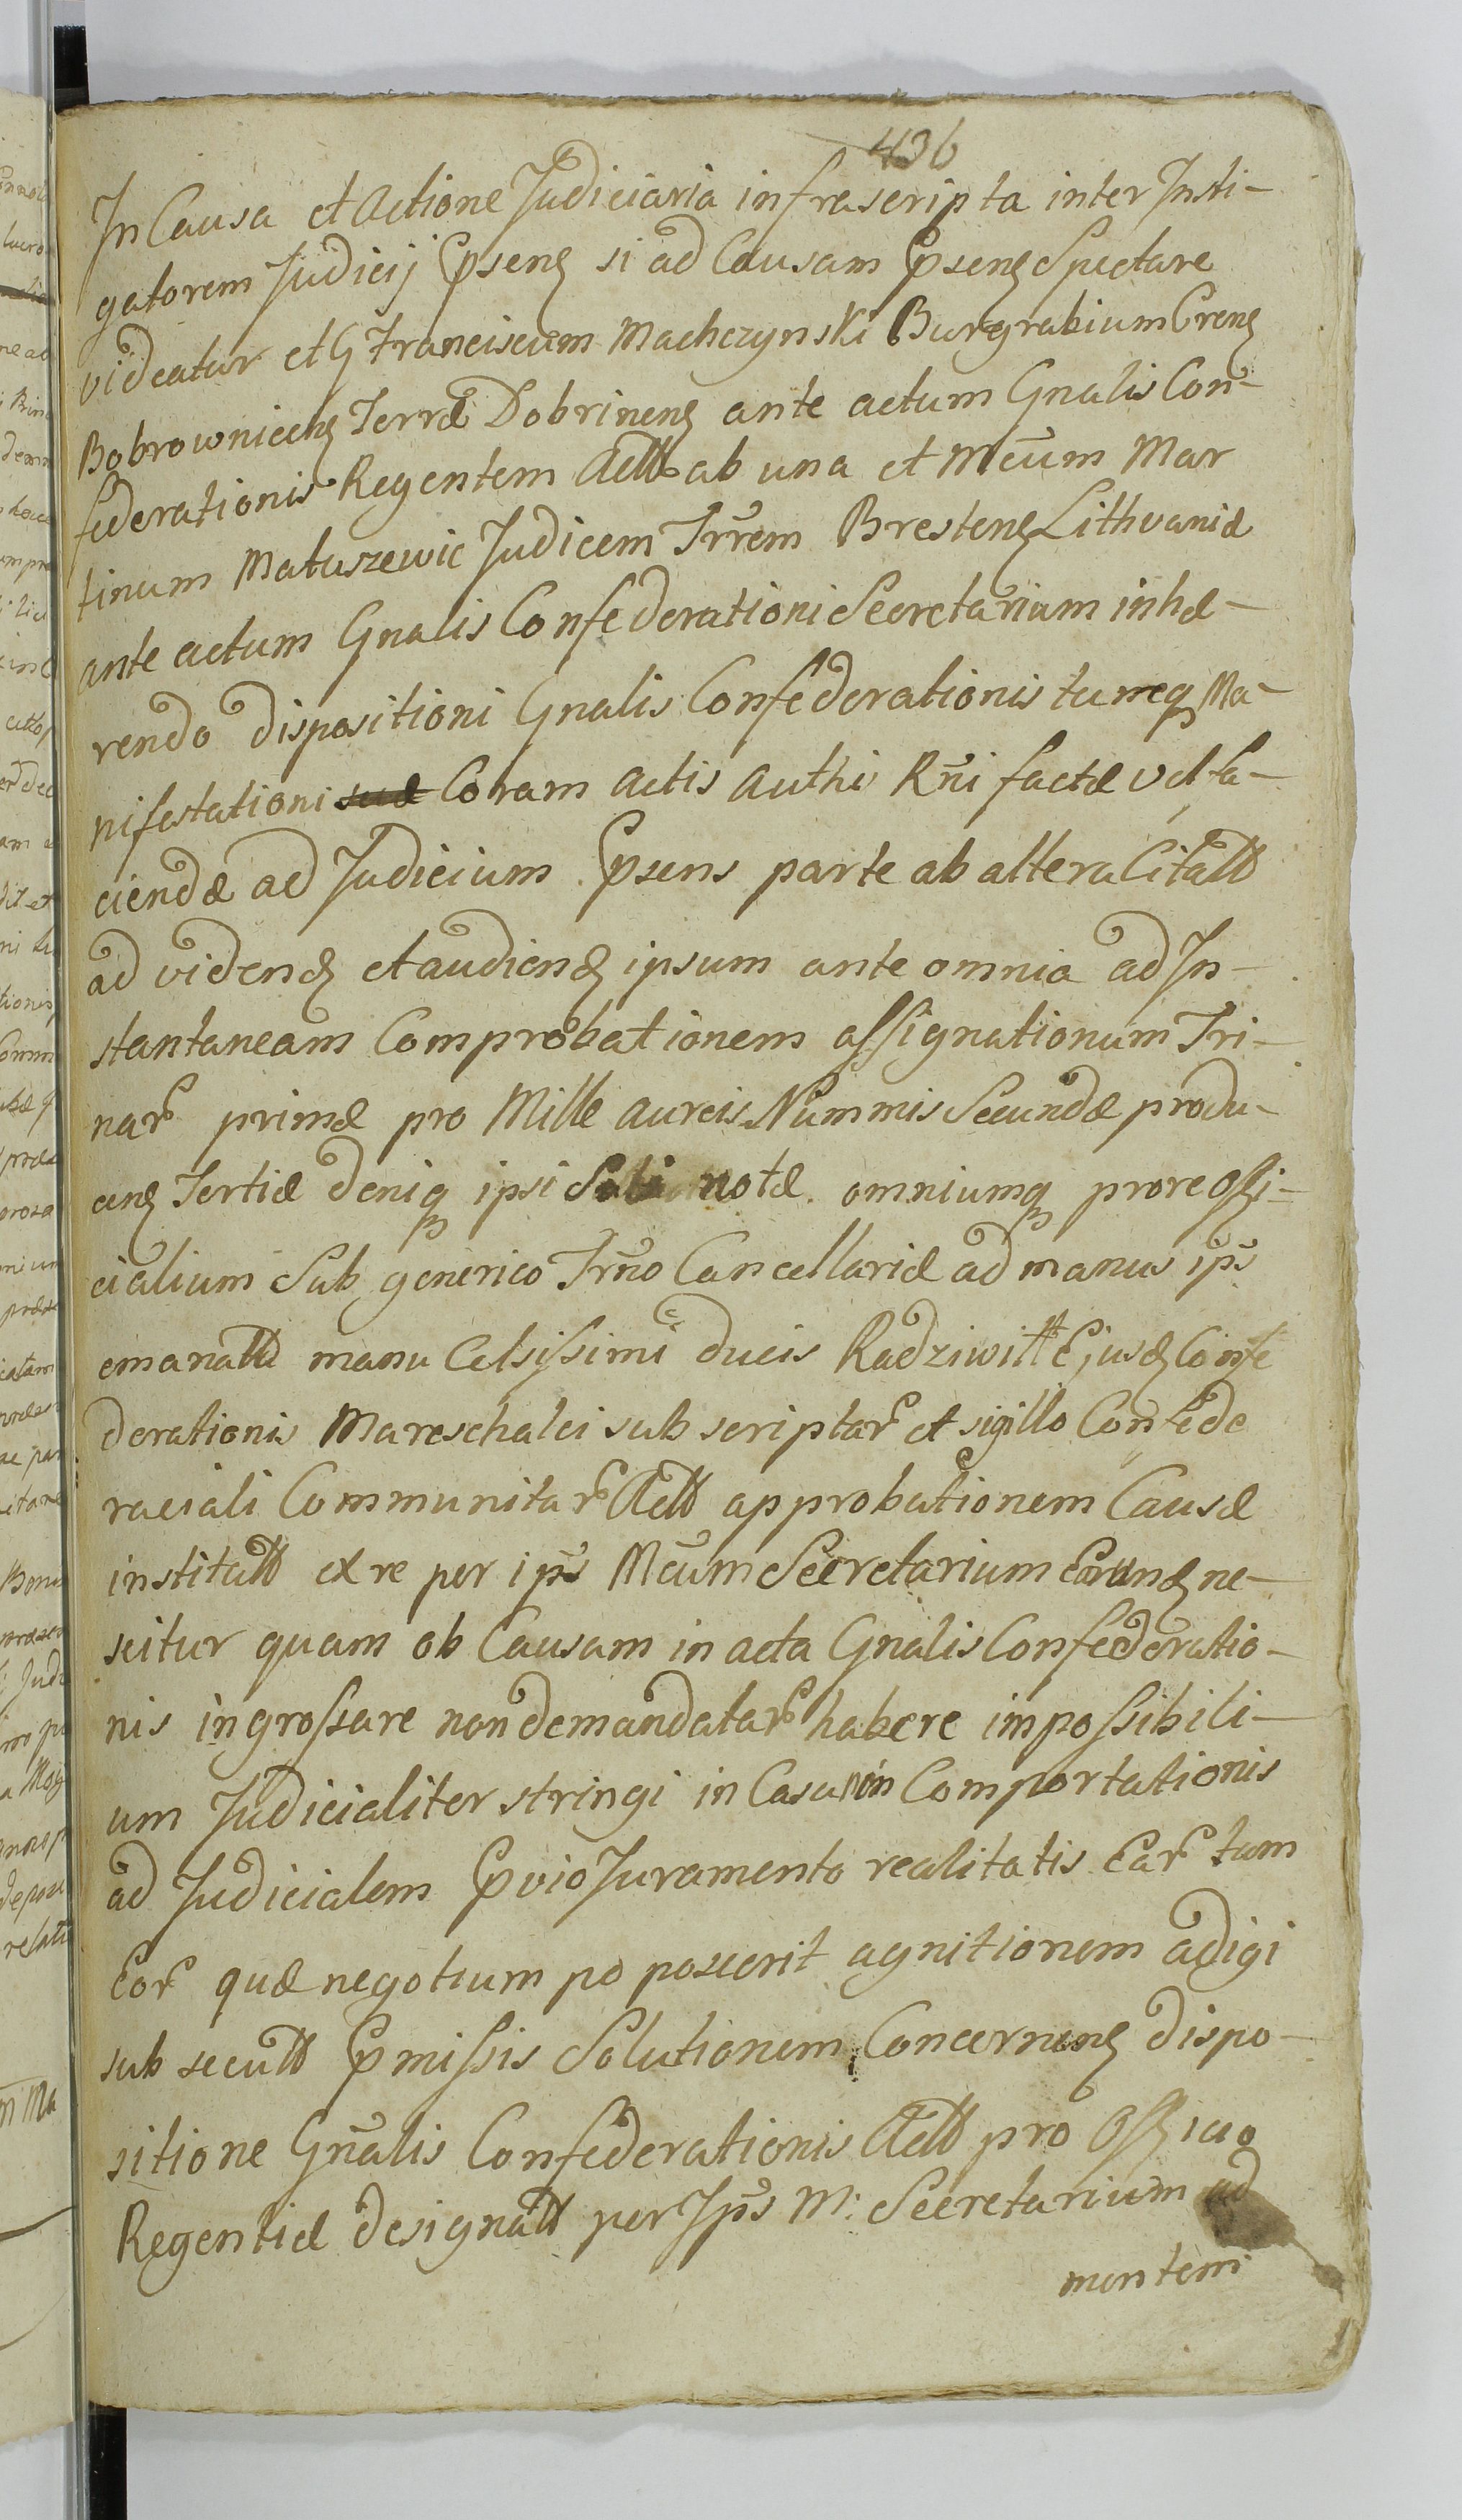 436
In Causa et Actione Judiciaria infrascripta inter Insti-
gatorem Judicij Pseng si ad Causam Pseng Spectare
videatur et G Franciscum Machczynski Burgrabium Creng
Bobrowniceng Terræ Dobrineng ante actum Gnalis Con-
federationis Regentem Actt ab una et Mcum Mar
tinum Matuszewic Judicem Trrem Bresteng Lithvaniæ
ante actum Gnalis Confederationi Secretarium inhæ-
rendo dispositioni Gnalis Confederationis tumq Ma-
nifestationi suæ Coram Actis Authi Rni factæ vel fa-
ciendæ ad Judicium Psens parte ab altera Citatt
ad videnḋ et audienḋ ipsum ante omnia ad In-
stantaneam Comprobationem assignationum Tri-
nar primæ pro Mille aureis Nummis Secundæ produ-
ceng Tertiæ deniq ipsi Soli notæ omniumq pro re Offi-
cialium Sub generico Trno Cancellariæ ad manus ips
emanatt manu Celsissimi ducis Radziwitt Ejusd Confe
derationis Mareschalci sub scriptar et sigillo Confede
raciali Communitar Actt approbationem Causæ
institatt ex re per ips Mcum Secretarium Earund ne-
scitur quam ob Causam in acta Gnalis Confederatio-
nis ingrossare non demandatar habere impossibili-
um Judicialiter stringi in Casu non Comportationis
ad Judicialem Pvio Juramento realitatis Ear tam
Eor quæ negotium po poscerit agnitionem adigi
sub secutt Pmissis Solutionem Concerneng dispo-
sitione Gnalis Confederationis Actt pro Officio
Regentiæ designatt per Ips M: Secretarium ad
mentem